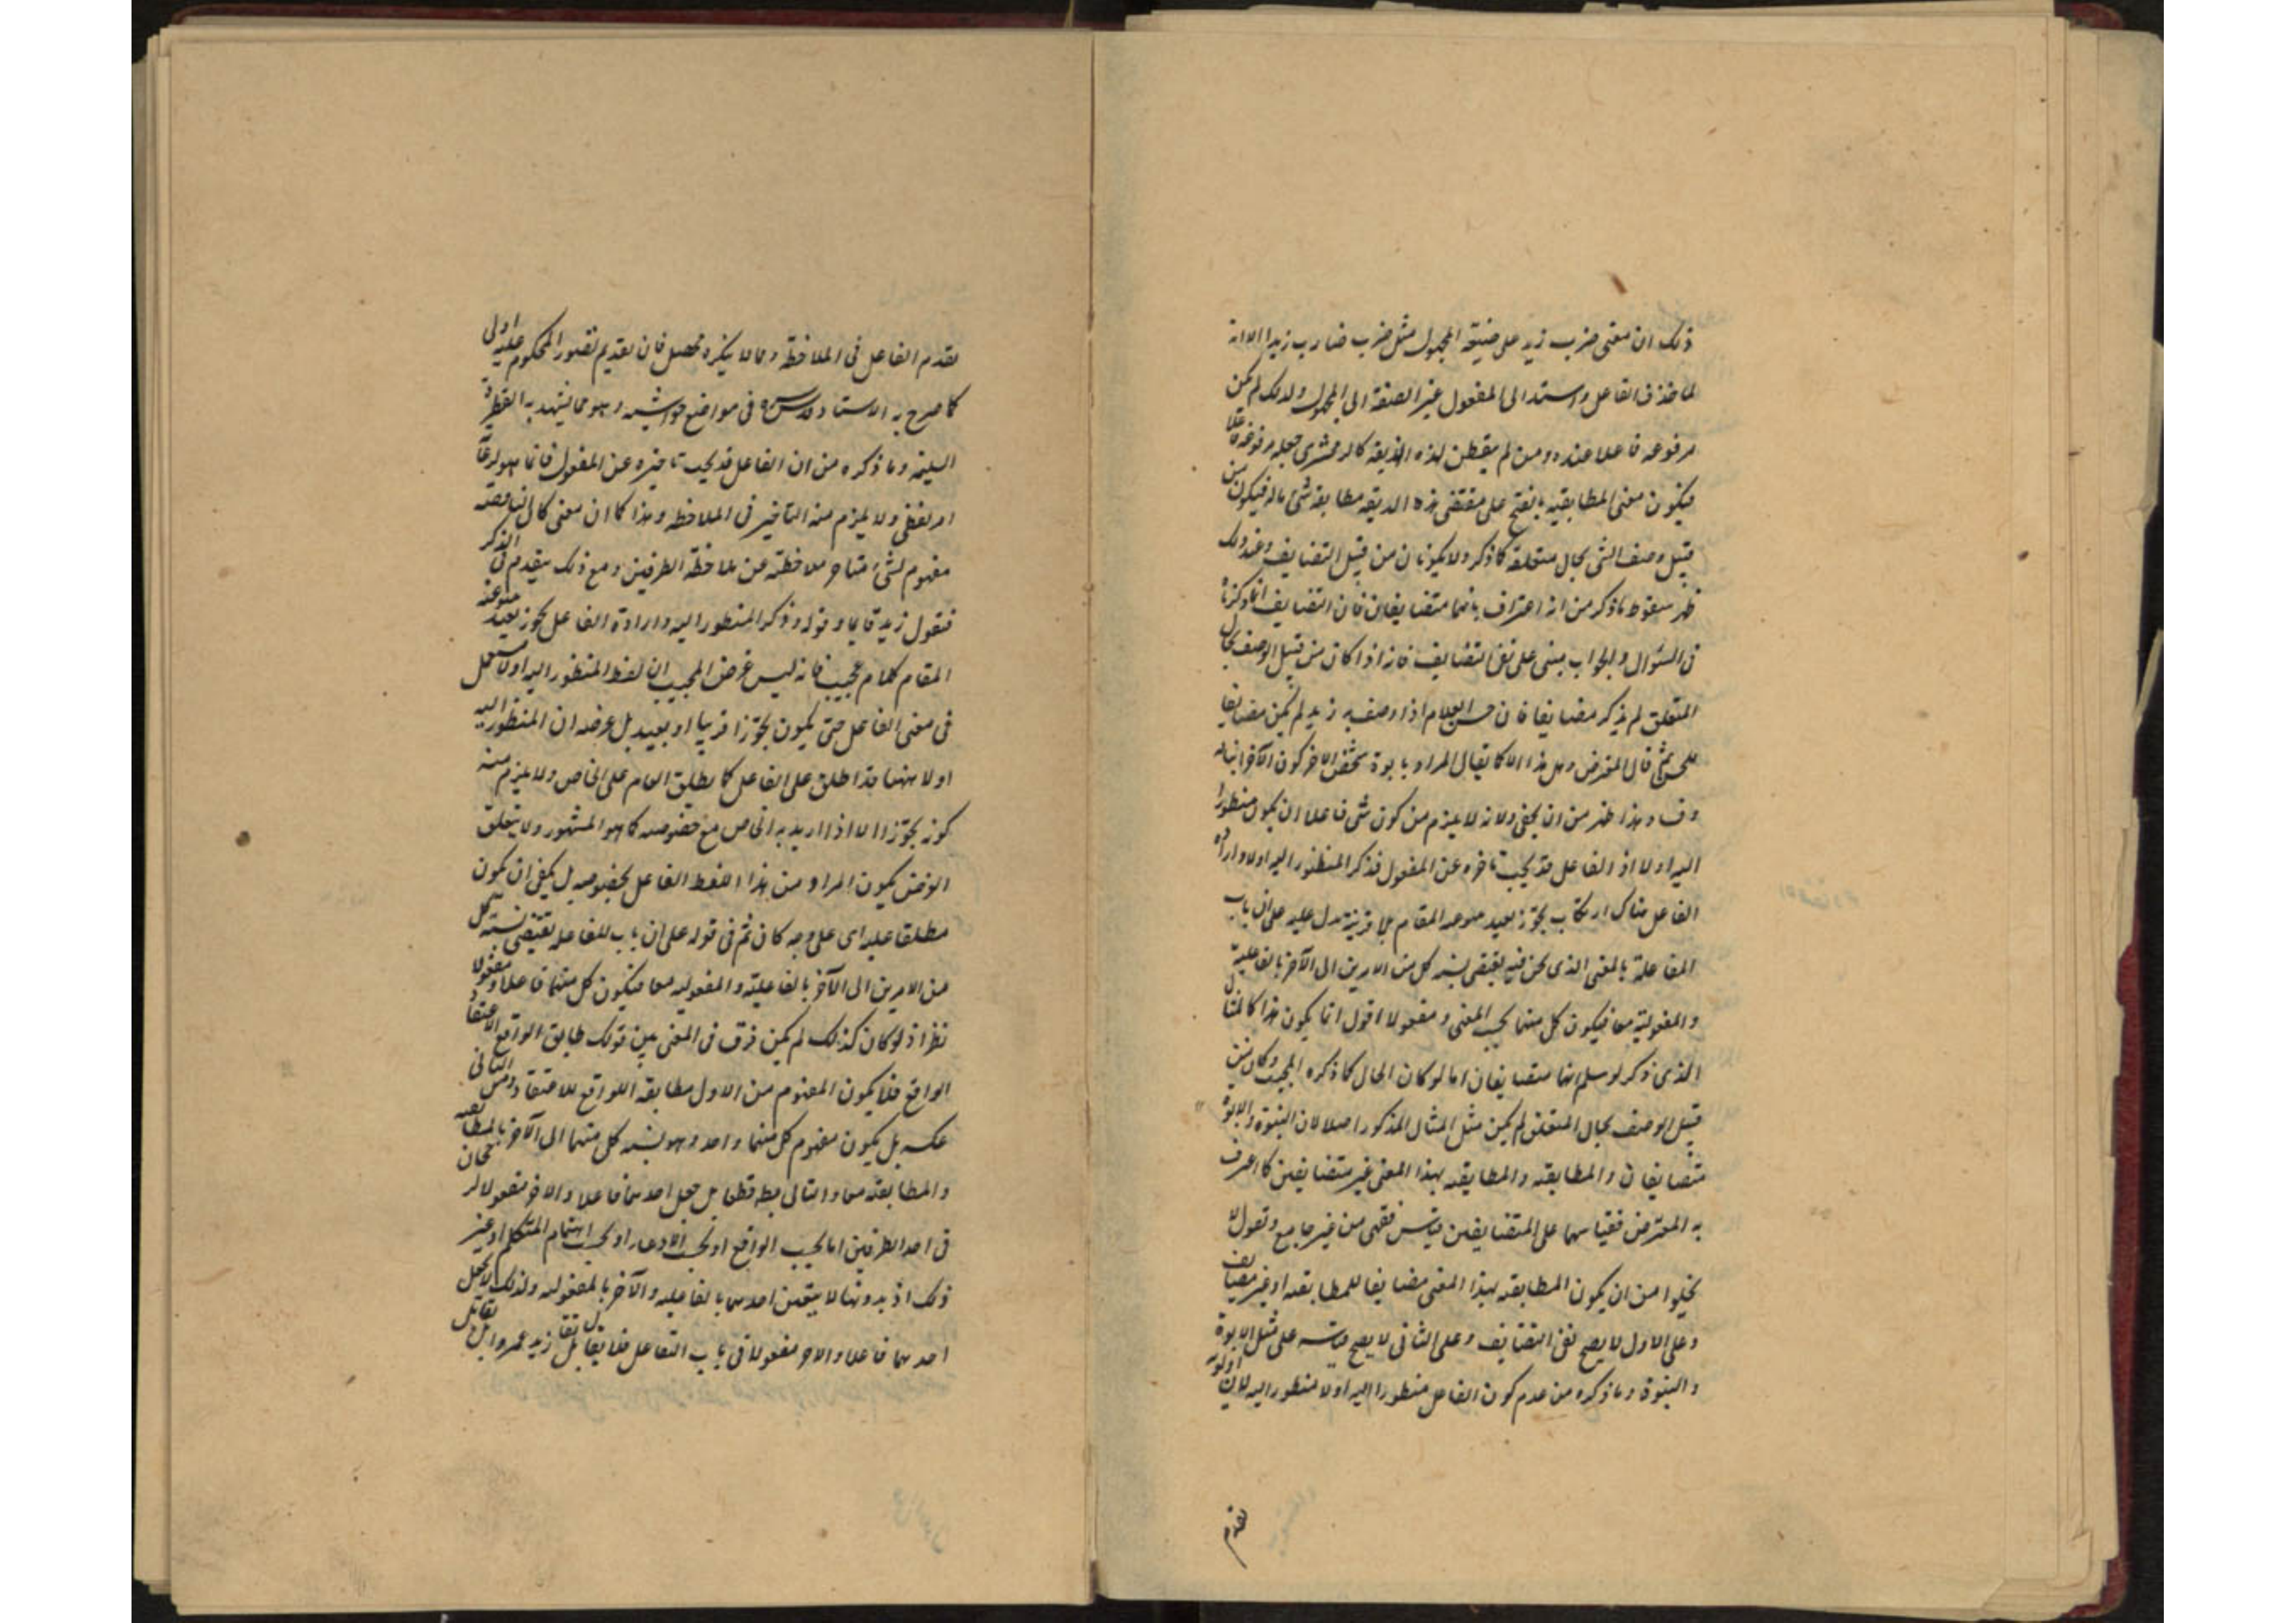 ذلك ان معنى ضرب زيد على صيغة المجهول مثل ضرب ضارب زيدا الا انه
لما حذف الفاعل واسند الى المفعول غير الصيغة الى المجهول ولذلك لم يكن
مرفوعه فاعلا عنده ومن لم يتفطن لهذه الدقيقة كالزمخشرى جعل مرفوعه فاعلا
فيكون معنى المطابقية بالفتح على مقتضى هذه الدقيقة مطابقة شئ ما له فيكون من
قبيل وصف الشئ بحال متعلقه كما ذكر ولا يكونان من قبيل التضايف وعند ذلك
ظهر سقوط ما ذكر من انه اعتراف بانهما متضايفان فان التضايف انما ذكرناه
فى السؤال والجواب مبنى على نفى التضايف فانه اذا كان من قبيل الوصف بحال
المتعلق لم يذكر مضايفا فان حسن الغلام اذا وصف به زيد لم يكن مضايفا
للحسن ثم قال المعترض وهل هذا الا كما يقال المراد بابوة شخص لاخر كون الآخر ابنا له
وفساد هذا اظهر من ان يخفى ولانه لا يلزم من كون شئ فاعلا ان يكون منظورا
اليه اولا اذ الفاعل قد يجب تاخره عن المفعول فذكر المنظور اليه اولا وارادة
الفاعل هناك ارتكاب تجوز بعيد منوعه المقام بلا قرينة تدل عليه على ان باب
المفاعلة بالمعنى الذى نحن فيه يقتضى نسبة كل من الامرين الى الآخر بالفاعلية
والمفعولية معا فيكون كل منهما بحسب المعنى ومفعولا اقول انما يكون هذا كالمثال
الذى ذكر لو سلم انهما متضايفان اما لو كان الحال كما ذكره المجيب وكان من
قبيل الوصف بحال المتعلق لم يكن مثل المثال المذكور اصلا لان البنوة والابوة
متضايفان والمطابقة والمطابقية بهذا المعنى غير متضايفين كما اعترف
به المعترض فقياسهما على المتضايفين قياس فقهى من غير جامع ونقول لا
يخلوا من ان يكون المطابقة بهذا المعنى مضايفا للمطابقة او غير مضايف
وعلى الاول لا يصح نفى التضايف وعلى الثانى لا يصح قياسه على مثل الابوة
والبنوة وما ذكره من عدم كون الفاعل منظورا اليه اولا منظور اليه لان اولوية
تقدم
تقدم الفاعل فى الملاحظة ومما لا ينكره محصل فان تقديم تصور المحكوم عليه اولى
كما صرح به الاستاد قدس سره فى مواضع حواشيه وهو مما يشهد به الفطرة
السليمة وما ذكره من ان الفاعل قد يجب تاخيره عن المفعول فانما هو لرعاية
امر لفظى ولا يلزم منه التاخير فى الملاحظة وهذا كما ان معنى كان الناقصة
مفهوم لشئ متاخر ملاحظته عن ملاحظة الطرفين ومع ذلك يتقدم فى الذكر
فتقول زيد قايما وقوله وذكر المنظور اليه وارادة الفاعل تجوز بعيد منوعه
المقام كلام عجيب فانه ليس غرض المجيب ان لفظ المنظور اليه اولا مستعمل
فى معنى الفاعل حتى يكون تجوزا قريبا او بعيد بل غرضه ان المنظور اليه
اولا ههنا قد اطلق على الفاعل كما يطلق العام على الخاص ولا يلزم منه
كونه تجوزا الا اذا اريد به الخاص مع خصوصه كما هو المشهور ولا يتعلق
الغرض بكون المراد من هذا اللفظ الفاعل بخصوصه بل يكفى ان يكون
مطلقا عليه اى على وجه كان ثم فى قوله على ان باب المفاعلة يقتضى نسبة كل
من الامرين الى الآخر بالفاعلية والمفعولية معا فيكون كل منهما فاعلا ومفعولا
نظر اذ لو كان كذلك لم يكن فرق فى المعنى بين قولك طابق الواقع الاعتقاد
الواقع فلا يكون المفهوم من الاول مطابقة الواقع للاعتقاد ومن الثانى
عكسه بل يكون مفهوم كل منهما واحد وهو نسبة كل منهما الى الآخر بالمطابقية
والمطابقة معا والتالى بط قطعا بل جعل احدهما فاعلا والاخر مفعولا لرجحان
فى احد الطرفين اما بحسب الواقع او بحسب الادعاء او بحسب اهتمام المتكلم او غير
ذلك اذ بدونها لا يتعين احدهما بالفاعلية والآخر بالمفعولية ولذلك لا يجعل
احدهما فاعلا والاخر مفعولا فى باب التفاعل فلا يقال تقابل زيد عمروا بل تقابل